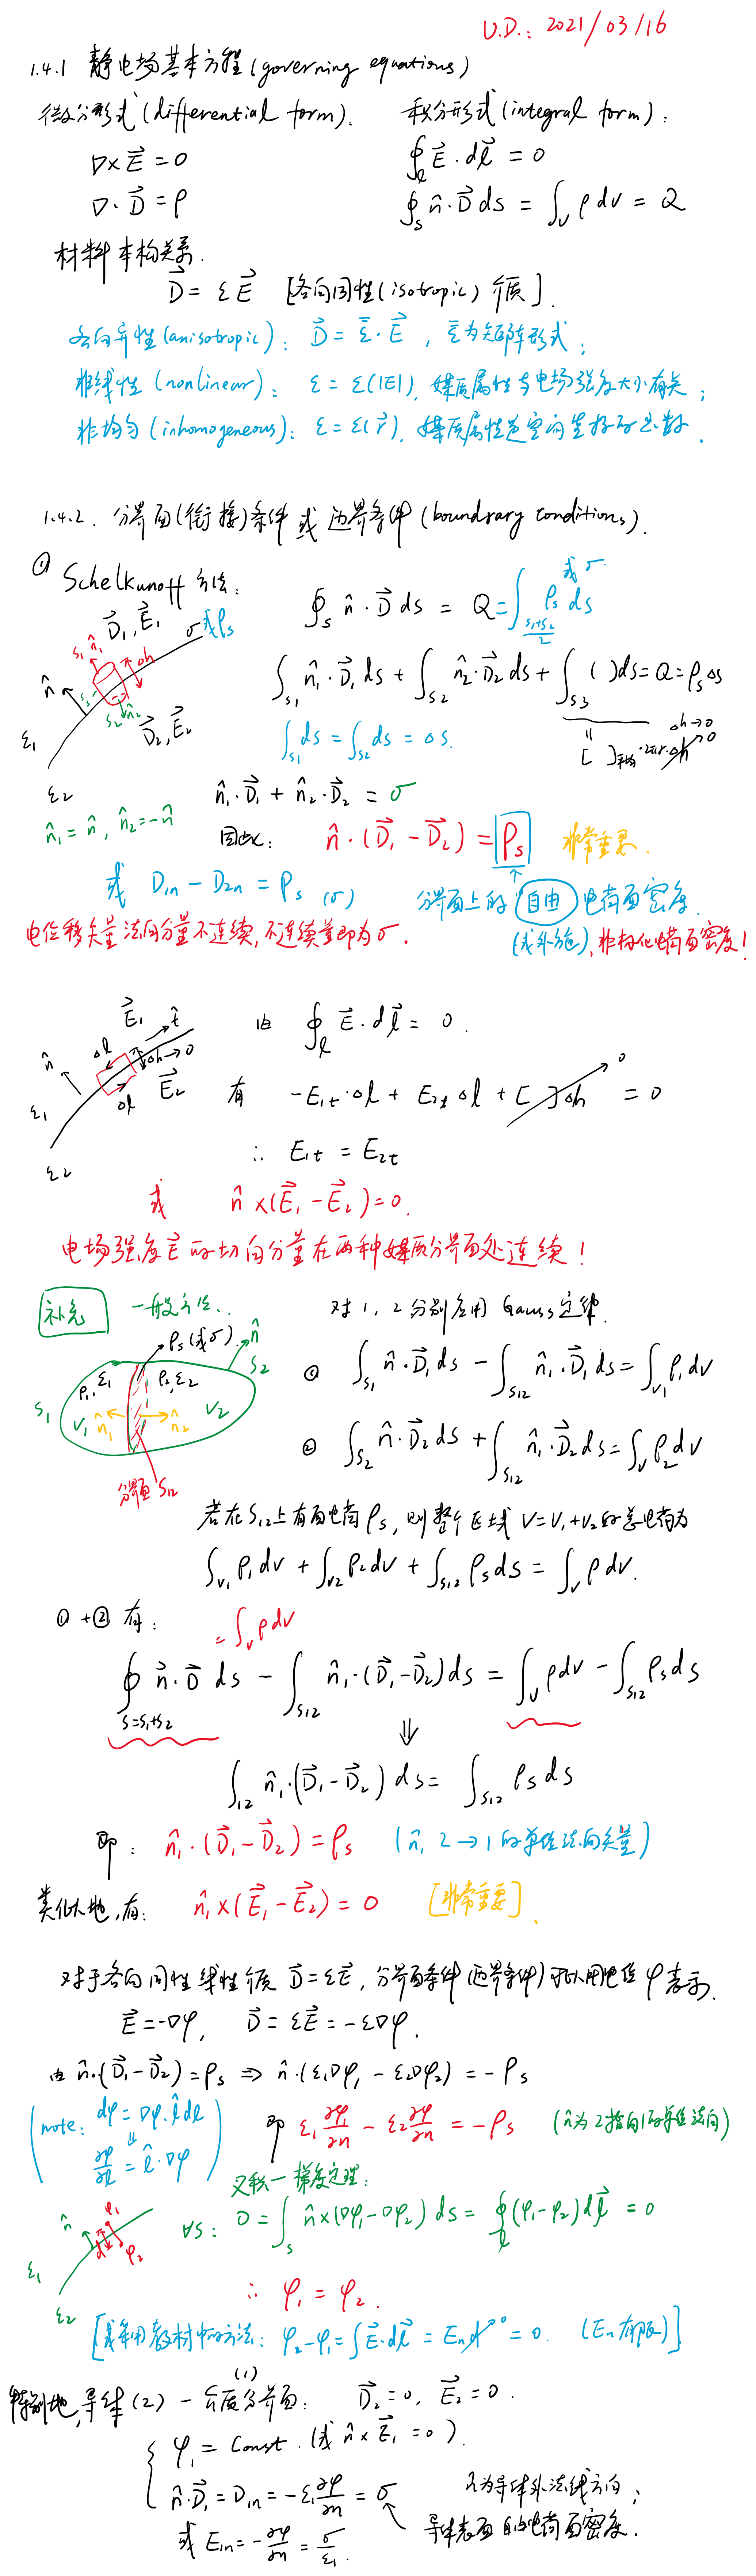 U.D.: 2021/03/16
1.4.1 静电场基本方程(governing equations)
微分形式(differential form). 积分形式(integral form):
∇×E⃗=0 ∮_l E⃗·dl⃗=0
∇·D⃗=ρ ∮_S n̂·D⃗ds=∫_V ρdv=Q
材料本构关系.
D⃗=εE⃗ [各向同性(isotropic)介质].
各向异性(anisotropic): D⃗=ε̿·E⃗, ε̿为矩阵形式;
非线性(nonlinear): ε=ε(|E|), 媒质属性与电场强度大小有关;
非均匀(inhomogeneous): ε=ε(r⃗), 媒质属性是空间坐标的函数.
1.4.2. 分界面(衔接)条件或边界条件(boundrary conditions).
① Schelkunoff 方法:
∮_S n̂·D⃗ds=Q=∫_{(S1+S2)/2} ρs ds 或σ
D⃗1,E⃗1 σ或ρs
S1 n̂1 Δh n̂ S3 S2 n̂2 D⃗2,E⃗2 ε1 ε2
∫_{S1} n̂1·D⃗1ds+∫_{S2} n̂2·D⃗2ds+∫_{S3}( )ds=Q=ρsΔs
∫_{S1}ds=∫_{S2}ds=Δs. [ ]平均·2πr·Δh→0 Δh→0
n̂1·D⃗1+n̂2·D⃗2=σ
n̂1=n̂, n̂2=-n̂
因此: n̂·(D⃗1-D⃗2)=ρs 非常重要.
或 D1n-D2n=ρs (σ) 分界面上的"自由"电荷面密度.
(或外施), 非极化电荷面密度!
电位移矢量法向分量不连续,不连续量即为σ.
E⃗1 t̂ n̂ Δl Δh→0 E⃗2 Δl ε1 ε2
由 ∮_l E⃗·dl⃗=0.
有 -E1t·Δl+E2tΔl+[ ]Δh 0 =0
∴ E1t=E2t
或 n̂×(E⃗1-E⃗2)=0.
电场强度E⃗的切向分量在两种媒质分界面处连续!
补充 一般方法..
对1,2分别应用Gauss定律.
ρs(或σ). n̂ S2 ρ1,ε1 ρ2,ε2 S1 V1 n̂1 n̂2 V2
分界面S12
① ∫_{S1} n̂·D⃗1ds-∫_{S12} n̂1·D⃗1ds=∫_{V1}ρ1dv
② ∫_{S2} n̂·D⃗2ds+∫_{S12} n̂1·D⃗2ds=∫_V ρ2dv
若在S12上有面电荷ρs,则整个区域V=V1+V2的总电荷为
∫_{V1}ρ1dv+∫_{V2}ρ2dv+∫_{S12}ρsds=∫_V ρdv.
①+②有: =∫_V ρdv
∮_{S=S1+S2} n⃗·D⃗ ds-∫_{S12} n̂1·(D⃗1-D⃗2)ds=∫_V ρdv-∫_{S12}ρsds
⇓
∫_{12} n̂1·(D⃗1-D⃗2)ds=∫_{S12}ρsds
即: n̂1·(D⃗1-D⃗2)=ρs (n̂1 2→1的单位法向矢量)
类似地,有: n̂1×(E⃗1-E⃗2)=0 [非常重要].
对于各向同性线性介质 D⃗=εE⃗, 分界面条件(边界条件)可以用电位φ表示.
E⃗=-∇φ, D⃗=εE⃗=-ε∇φ.
由 n̂·(D⃗1-D⃗2)=ρs ⇒ n̂·(ε1∇φ1-ε2∇φ2)=-ρs
(note: dφ=∇φ·l̂dl ⇓ ∂φ/∂l=l̂·∇φ)
即 ε1∂φ1/∂n-ε2∂φ2/∂n=-ρs (n̂为2指向1的单位法向)
又积一梯度定理:
∀S: 0=∫_S n̂×(∇φ1-∇φ2)ds=∮_l(φ1-φ2)dl⃗=0
n̂ φ1 d φ2 ε1 ε2
∴ φ1=φ2.
[或采用教材中的方法: φ2-φ1=∫E⃗·dl⃗=En d→0=0. (En有限)]
特别地,导体(2)-介质(1)分界面: D⃗2=0, E⃗2=0.
{ φ1=Const. (或 n̂×E⃗1=0).
n̂·D⃗1=D1n=-ε1∂φ/∂n=σ n为导体外法线方向;
或 E1n=-∂φ/∂n=σ/ε1. 导体表面自由电荷面密度.